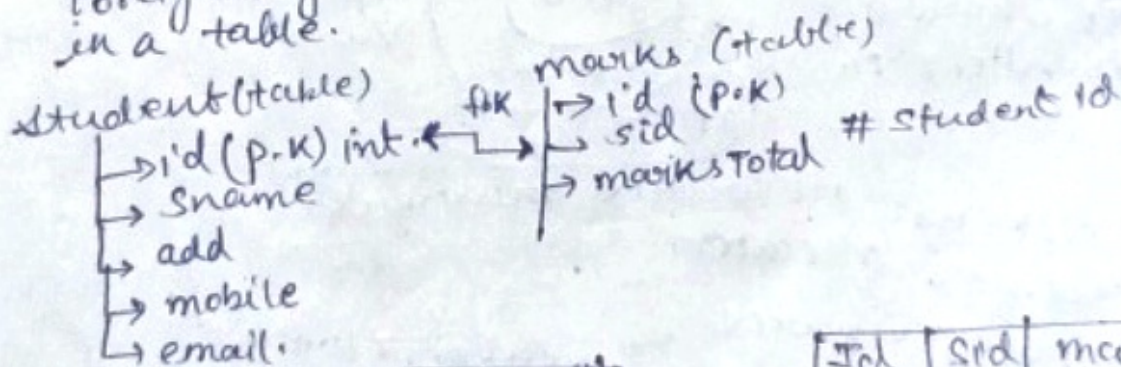 in a table.
Student (table)
id (P.K) int.
Sname
add
mobile
email.
f.K
marks (table)
id (P.K)
sid # Student id
marksTotal
Id Sid